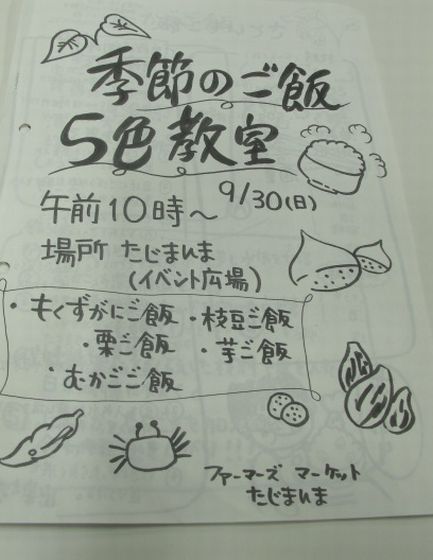 季節のご飯
5色教室
午前10時〜 9/30(日)
場所 たじまんま
(イベント広場)
・もくずがにご飯 ・枝豆ご飯
・栗ご飯 ・芋ご飯
・むかごご飯
ファーマーズ マーケット
たじまんま